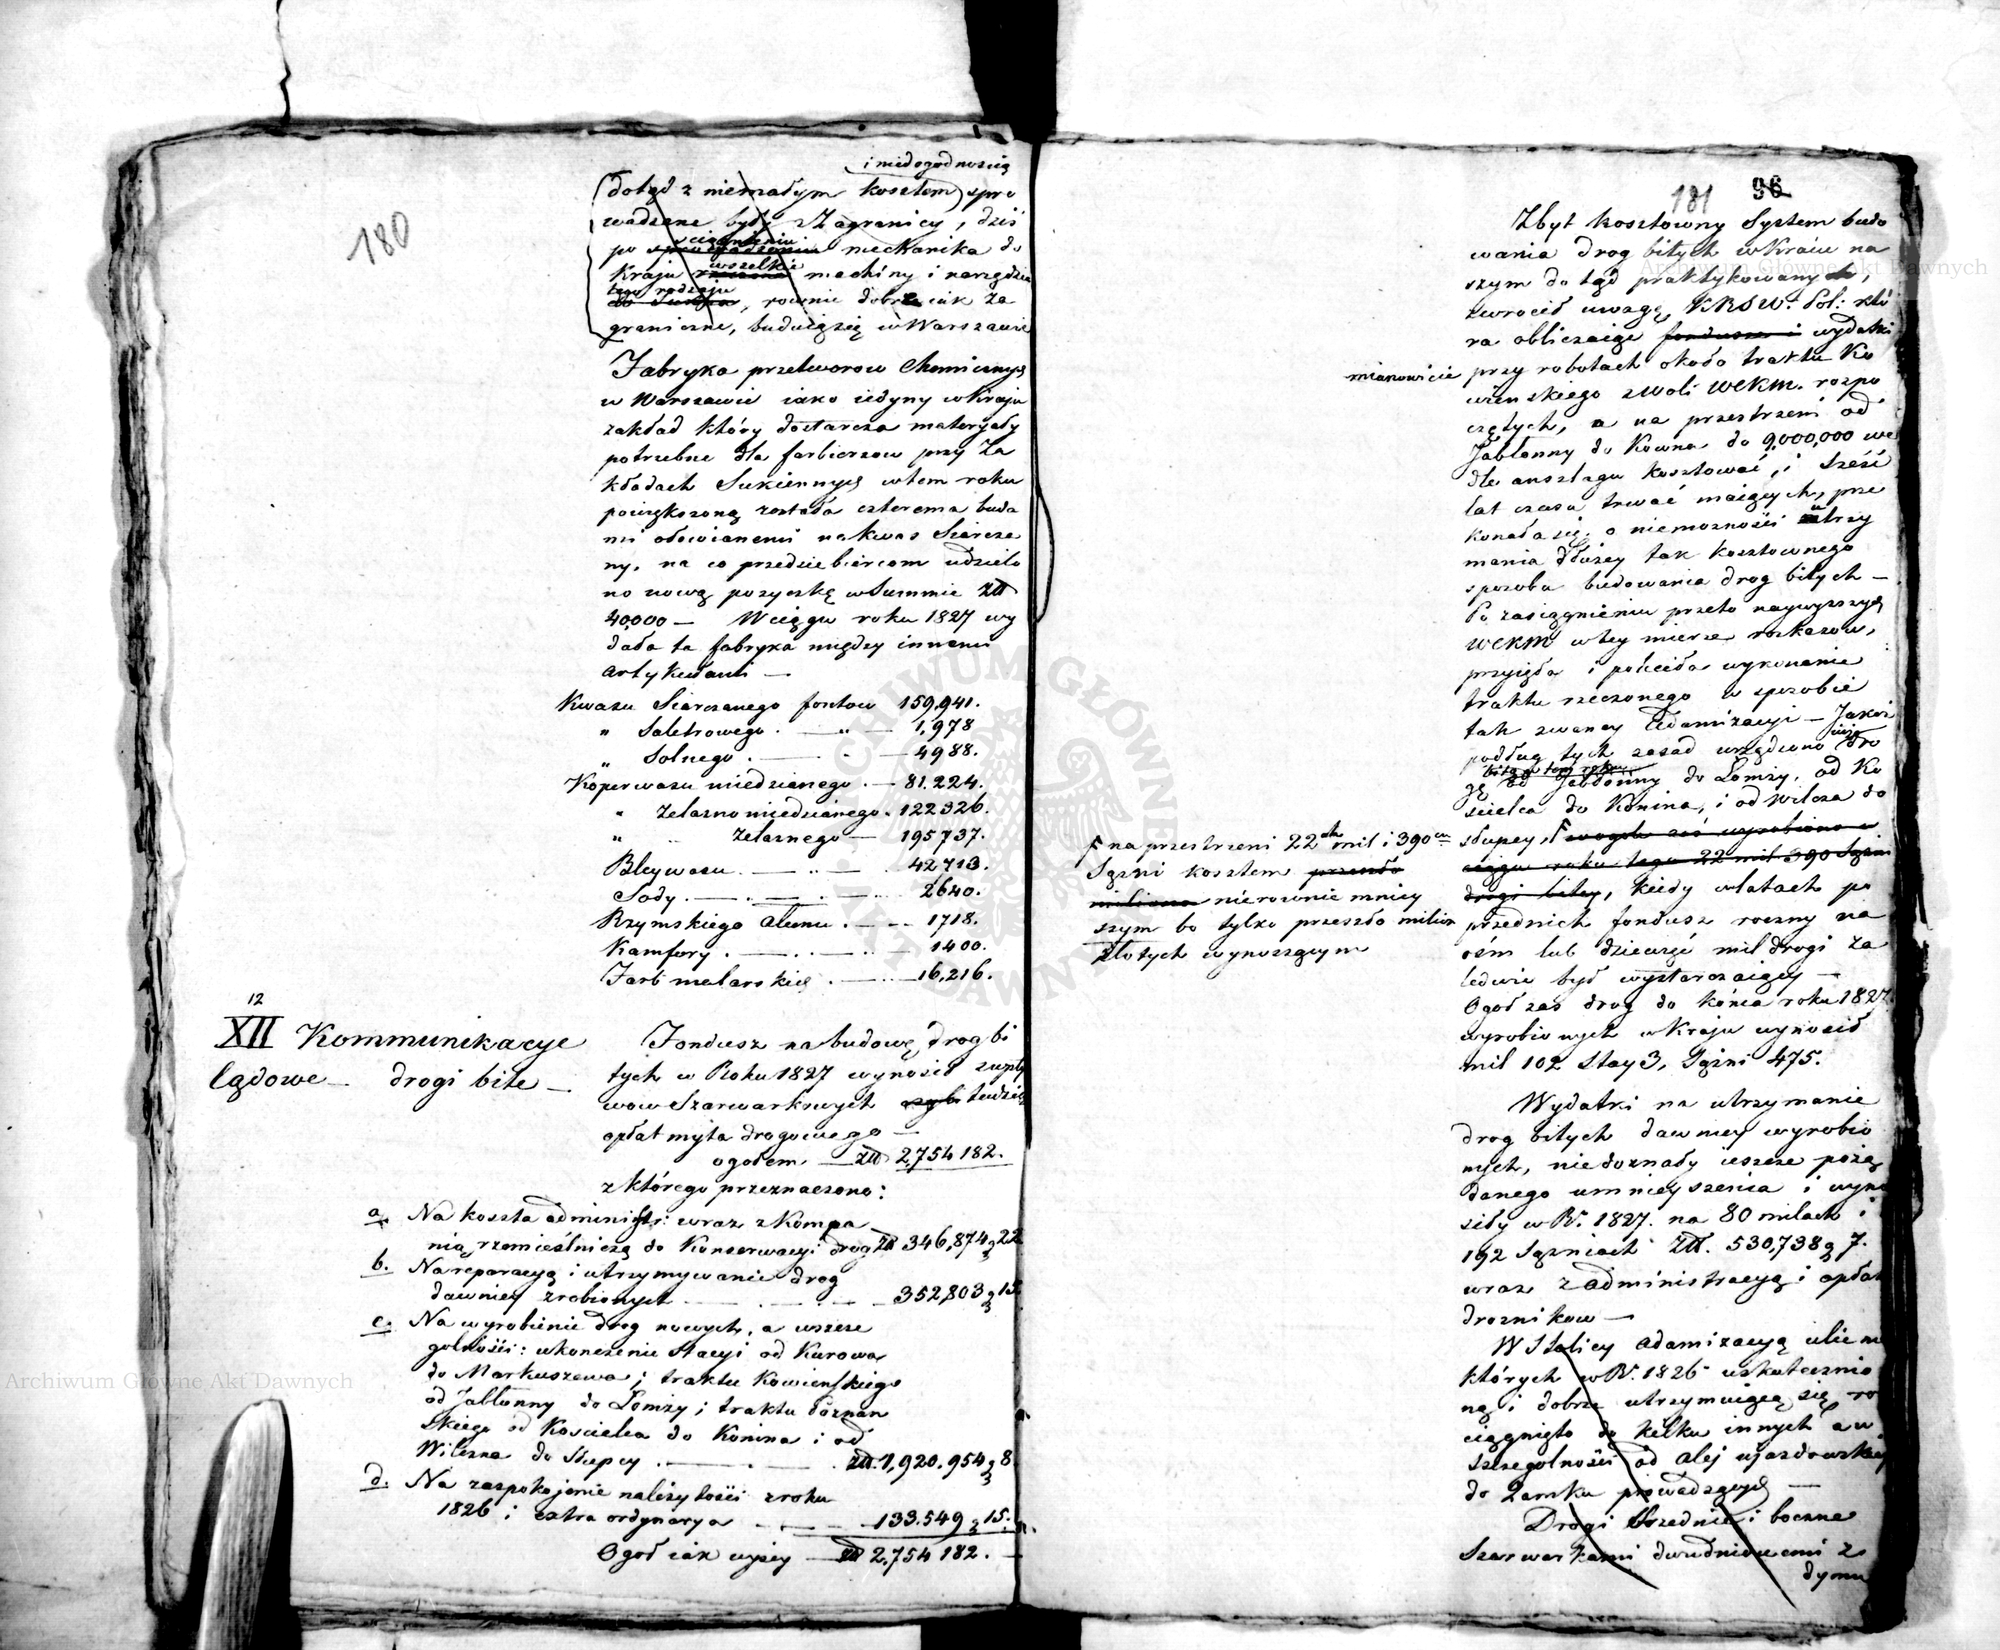 180
i niedogodnością
dotąd z niemałym kosztem spro
wadzane były z Zagranicy, dziś
po ściągnieniu mechanika do
Kraju wszelkie machiny i narzędzia
tego rodzaju, rownie dobre iak za
graniczne, buduią się w Warszawie
Fabryka przetworow Chemicznych
w Warszawie iako iedyny w Kraju
zakład który dostarcza materyały
potrzebne dla farbierzow przy Za
kładach Sukiennych w tem roku
powiększoną została czterema buda
mi ołowianemi na kwas Siarcza
ny, na co przedsiebiercom udzielo
no nową pożyczkę w Summie Złł
40,000 — W ciągu roku 1827 wy
dała ta fabryka między innemi
artykułami —
Kwasu Siarczanego fontow 159,941.
" Saletrowego . — " — 1,978
" Solnego . — 4988.
Koperwasu miedzianego . — 81.224.
" Żelazno miedzianego . 122326.
" " Żelaznego — 195737.
Bleywasu . — " — 42713.
Sody . — . — . — 2640.
Rzymskiego Ałunu . — 1718.
Kamfory . — . . — 1400.
Farb malarskich . — 16,216.
12
XII Kommunikacye
lądowe — drogi bite —
Fondusz na budowę drog bi
tych w Roku 1827 wynosił z wpły
wow Szarwarkowych tudzież
opłat myta drogowego —
ogołem — Złł 2,754 182.
z którego przeznaczono:
a. Na koszta administr: wraz z Kompa
nią rzemieślniczą do Konserwacyi drog Złł 346,874 g 22
b. Na reparacyą i utrzymywanie drog
dawniey zrobionych — . — . — 352,803 g 15
c. Na wyrobienie drog nowych, a wszcze
gólności: ukończenie Stacyi od Kurowa
do Markuszewa; traktu Kowieńskiego
od Jabłonny do Łomży; traktu Poznań
skiego od Kościelca do Konina i od
Wilczna do Słupcy . — . — . Złł. 1,920.954 g 8
d. Na zaspokojenie należytości z roku
1826 i extra ordynarya — 133.549 g 15.
Ogoł iak wyżey — Złł 2,754 182.
181 96
Zbyt kosztowny System budo
wania drog bitych w Kraiu na
szym do tąd praktykowanych,
zwrócił uwagę, KRSW. i Pol: któ
ra obliczaiąc fundusze i wydatki
mianowicie przy robotach około traktu Ko
wieńskiego z woli WCKM. rozpo
czętych, a na przestrzeni od
Jabłonny do Kowna do 9,000,000 we
dle anszlagu kosztować, i sześć
lat czasu trwać maiących, prze
konała się o niemożności utrzy
mania dłużey tak kosztownego
sposobu budowania drog bitych —
Po zasiągnieniu przeto naywyższych
WCKM w tey mierze rozkazow,
przyięła i poleciła wykonanie
traktu rzeczonego w sposobie
tak zwaney Adamizacyi — Jakoż
podług tych zasad urządzono dro
gę bitą w tem roku od Jabłonny do Łomży, od Ko
ścielca do Konina, i od Wilcza do
Słupcy, F wogole zaś wyrobiono w
ciągu roku tego 22 mil 390 Sążni
drogi bitey, kiedy w latach po
przednich fondusz roczny na
ośm lub dziewięć mil drogi za
ledwie był wystarczaiący —
F na przestrzeni 22ch mil i 390cu
Sążni kosztem przeszło
miliona nierownie mniey
szym bo tylko przeszło milion
złotych wynoszącym
Ogoł zas drog do końca roku 1827
wyrobionych w Kraju wynosił
mil 102 Stay 3, Sążni 475.
Wydatki na utrzymanie
drog bitych dawniey wyrobio
nych, niedoznały ieszcze pożą
danego umnieyszenia i wyno
siły w R. 1827. na 80 milach i
192 Sążniach Złł. 530,738 g 7.
wraz z administracyą i opłat
drożnikow —
W Stolicy adamizacyą ulic na
których w R. 1826 uskutecznio
ną i dobrze utrzymuiącą się ro
ciągnięto do kilku innych a w
szczegolności od alej ujazdowskiej
do Zamku prowadzących —
Drogi średnie i boczne
Szarwarkami dwudniowemi z
dymu